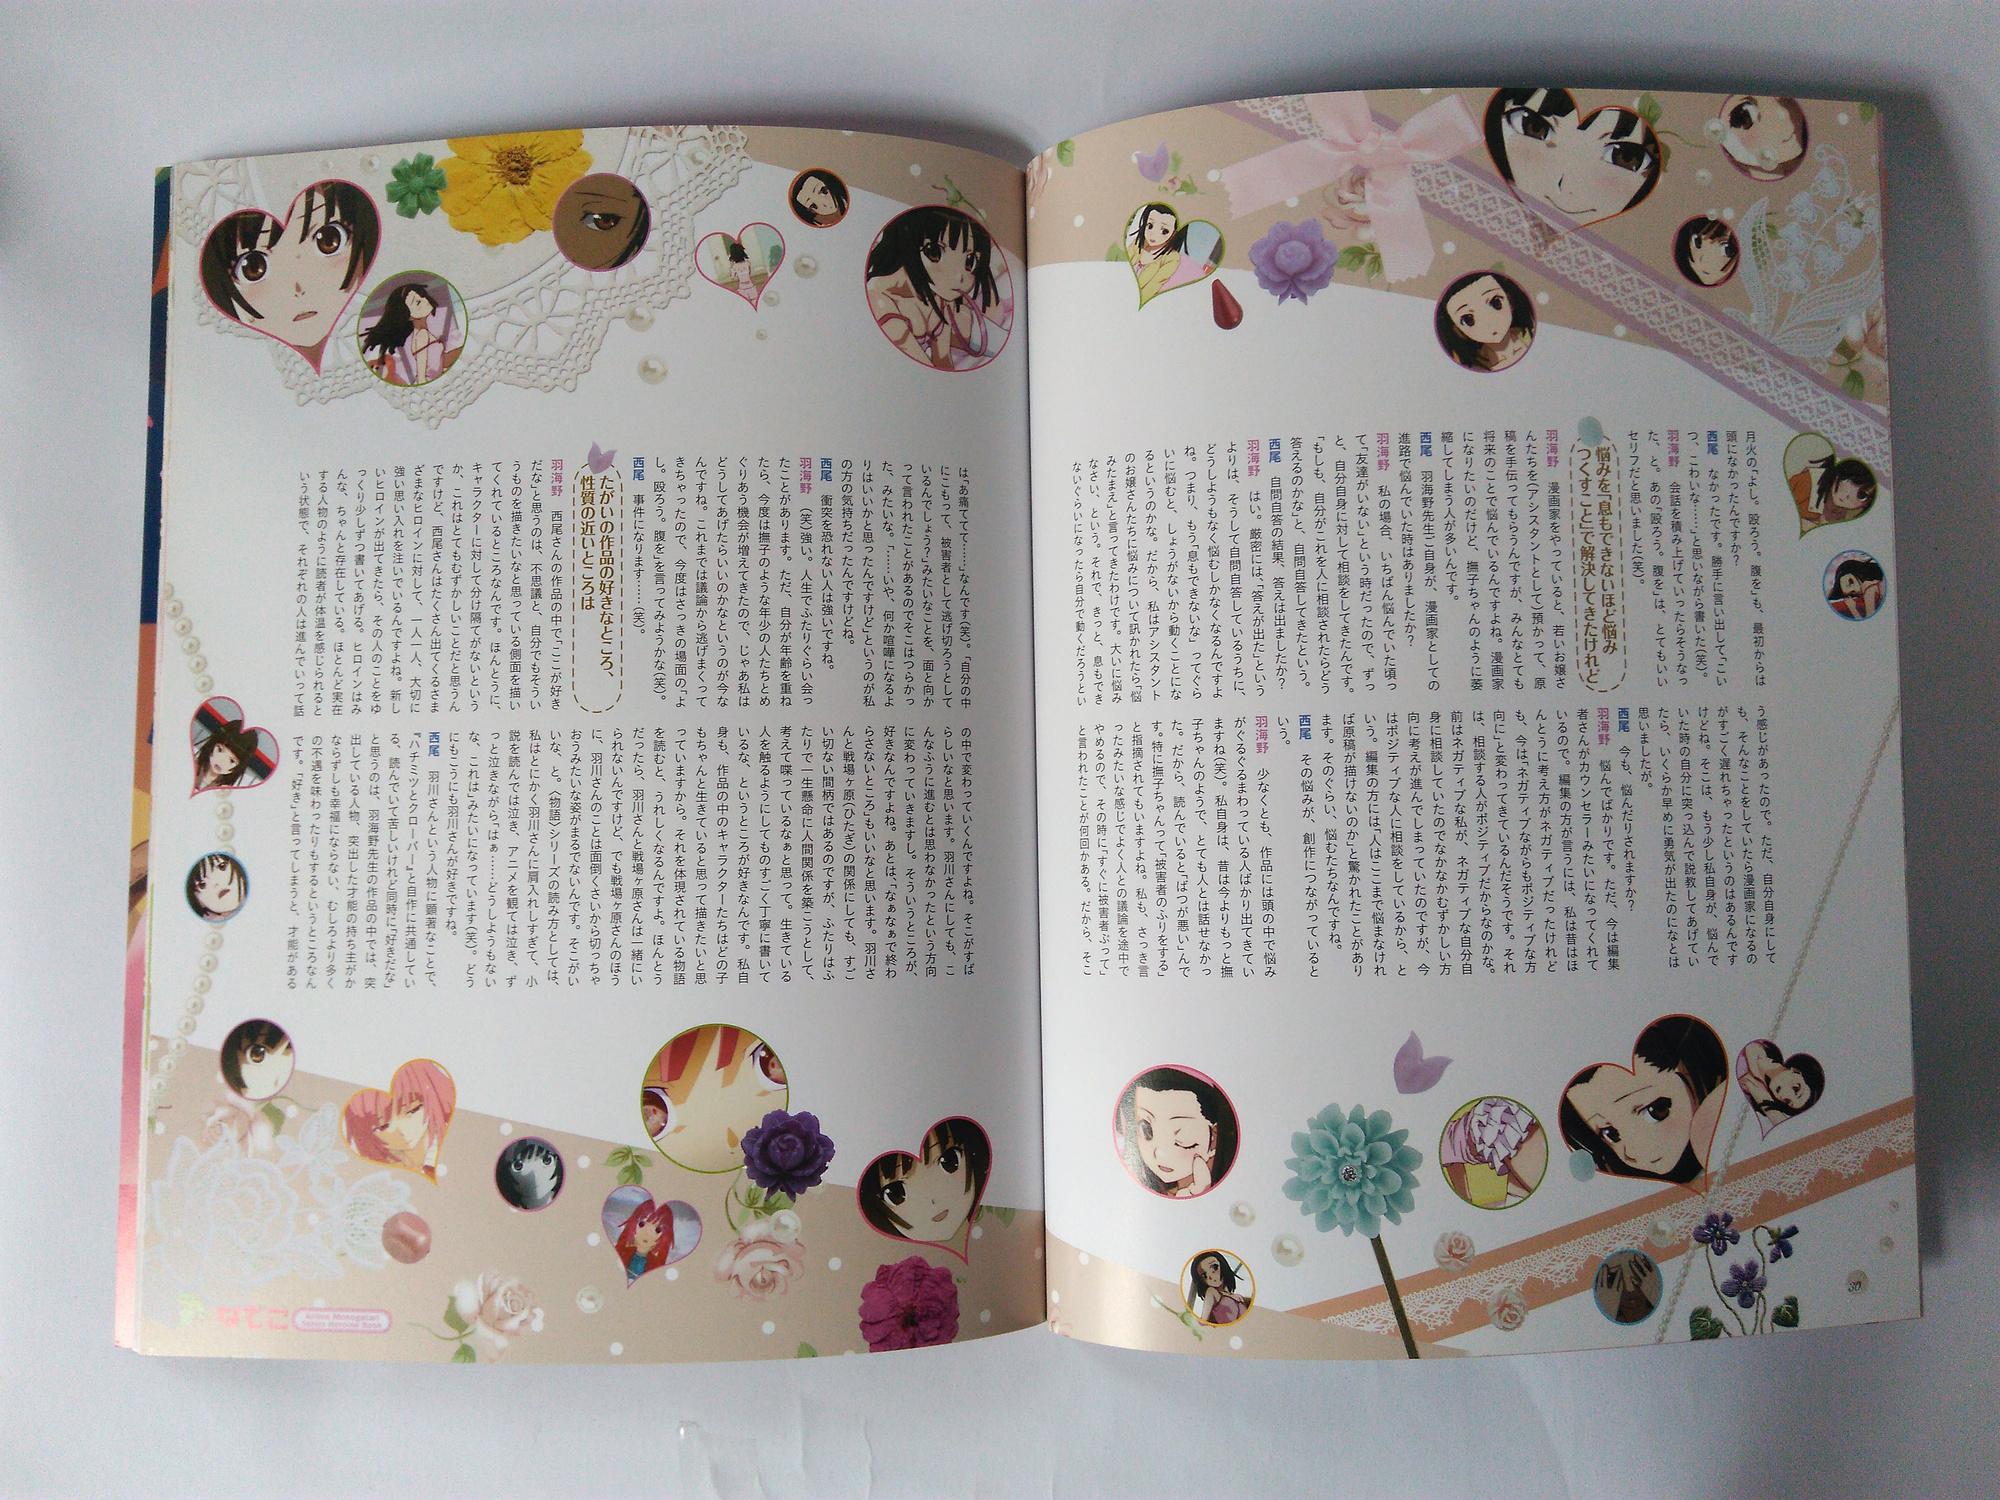 月火の「よし。殴ろう。腹を」も、最初からは
頭になかったんですか?
西尾 なかったです。勝手に言い出して「こい
つ、こわいな……」と思いながら書いた(笑)。
羽海野 会話を積み上げていったらそうなっ
た、と。あの「殴ろう。腹を」は、とてもいい
セリフだと思いました(笑)。
悩みを「息もできないほど悩み
つくすこと」で解決してきたけれど
羽海野 漫画家をやっていると、若いお嬢さ
んたちを(アシスタントとして)預かって、原
稿を手伝ってもらうんですが、みんなとても
将来のことで悩んでいるんですよね。漫画家
になりたいのだけど、撫子ちゃんのように萎
縮してしまう人が多いんです。
西尾 羽海野先生ご自身が、漫画家としての
進路で悩んでいた時はありましたか?
羽海野 私の場合、いちばん悩んでいた頃っ
て「友達がいない」という時だったので、ずっ
と、自分自身に対して相談をしてきたんです。
「もしも、自分がこれを人に相談されたらどう
答えるのかな」と、自問自答してきたという。
西尾 自問自答の結果、答えは出ましたか?
羽海野 はい。厳密には、「答えが出た」という
よりは、そうして自問自答しているうちに、
どうしようもなく悩むしかなくなるんですよ
ね。つまり、もう「息もできないな」ってぐら
いに悩むと、しょうがないから動くことにな
るというのかな。だから、私はアシスタント
のお嬢さんたちに悩みについて訊かれたら「悩
みたまえ」と言ってきたわけです。大いに悩み
なさい、という。それで、きっと、息もでき
ないぐらいになったら自分で動くだろうとい
う感じがあったので。ただ、自分自身にして
も、そんなことをしていたら漫画家になるの
がすごく遅れちゃったというのはあるんです
けどね。そこは、もう少し私自身が、悩んで
いた時の自分に突っ込んで説教してあげてい
たら、いくらか早めに勇気が出たのになとは
思いましたが。
西尾 今も、悩んだりされますか?
羽海野 悩んでばかりです。ただ、今は編集
者さんがカウンセラーみたいになってくれて
いるので。編集の方が言うには、私は昔はほ
んとうに考え方がネガティブだったけれど
も、今は「ネガティブながらもポジティブな方
向に」と変わってきているんだそうです。それ
は、相談する人がポジティブだからなのかな。
前はネガティブな私が、ネガティブな自分自
身に相談していたのでなかなかむずかしい方
向に考えが進んでしまっていたのですが、今
はポジティブな人に相談をしているから、と
いう。編集の方には「人はここまで悩まなけれ
ば原稿が描けないのか」と驚かれたことがあり
ます。そのぐらい、悩むたちなんですね。
西尾 その悩みが、創作につながっていると
いう。
羽海野 少なくとも、作品には頭の中で悩み
がぐるぐるまわっている人ばかり出てきてい
ますね(笑)。私自身は、昔は今よりもっと撫
子ちゃんのようで、とても人とは話せなかっ
た。だから、読んでいると「ばつが悪いんで
す。特に撫子ちゃんって「被害者のふりをする」
と指摘されてもいますよね。私も、さっき言
ったみたいな感じでよく人との議論を途中で
やめるので、その時に「すぐに被害者ぶって」
と言われたことが何回かある。だから、そこ
30
は「あ痛てて……」なんです(笑)。「自分の中
にこもって、被害者として逃げ切ろうとして
いるんでしょう?」みたいなことを、面と向か
って言われたことがあるのでそこはつらかっ
た、みたいな。「……いや、何か喧嘩になるよ
りはいいかと思ったんですけど」というのが私
の方の気持ちだったんですけどね。
西尾 衝突を恐れない人は強いですね。
羽海野 (笑)強い。人生でふたりぐらい会っ
たことがあります。ただ、自分が年齢を重ね
たら、今度は撫子のような年少の人たちとめ
ぐりあう機会が増えてきたので、じゃあ私は
どうしてあげたらいいのかなというのが今な
んですね。これまでは議論から逃げまくって
きちゃったので、今度はさっきの場面の「よ
し。殴ろう。腹を」を言ってみようかな(笑)。
西尾 事件になります……(笑)。
たがいの作品の好きなところ、
性質の近いところは
羽海野 西尾さんの作品の中で、「ここが好き
だな」と思うのは、不思議と、自分でもそうい
うものを描きたいなと思っている側面を描い
てくれているところなんです。ほんとうに、
キャラクターに対して分け隔てがないという
か、これはとてもむずかしいことだと思うん
ですけど、西尾さんはたくさん出てくるさま
ざまなヒロインに対して、一人一人、大切に
強い思い入れを注いでいるんですよね。新し
いヒロインが出てきたら、その人のことをゆ
っくり少しずつ書いてあげる。ヒロインはみ
んな、ちゃんと存在している。ほとんど実在
する人物のように読者が体温を感じられると
いう状態で、それぞれの人は進んでいって話
の中で変わっていくんですよね。そこがすば
らしいなと思います。羽川さんにしても、こ
んなふうに進むとは思わなかったという方向
に変わっていきますし。そういうところが、
好きなんですよね。あとは、「なぁなぁで終わ
らさないところ」もいいなと思います。羽川さ
んと戦場ヶ原(ひたぎ)の関係にしても、すご
い切ない間柄ではあるのですが、ふたりはふ
たりで一生懸命に人間関係を築こうとして、
考えて喋っているなぁと思って。生きている
人を触るようにしてものすごく丁寧に書いて
いるな、というところが好きなんです。私自
身も、作品の中のキャラクターたちはどの子
もちゃんと生きていると思って描きたいと思
っていますから。それを体現されている物語
を読むと、うれしくなるんですよ。ほんとう
だったら、羽川さんと戦場ヶ原さんは一緒にい
られないんですけど、でも戦場ヶ原さんのほう
に、羽川さんのことは面倒くさいから切っちゃ
おうみたいな姿がまるでないんです。そこがい
いな、と。〈物語〉シリーズの読み方としては、
私はとにかく羽川さんに肩入れしすぎて、小
説を読んでは泣き、アニメを観ては泣き、ず
っと泣きながら「はぁ……どうしようもない
な、これは」みたいになっています(笑)。どう
にもこうにも羽川さんが好きですね。
西尾 羽川さんという人物に顕著なことで、
『ハチミツとクローバー』と自作に共通してい
る、読んでいて苦しいけれど同時に「好きだな」
と思うのは、羽海野先生の作品の中では、突
出している人物、突出した才能の持ち主がか
ならずしも幸福にならない、むしろより多く
の不遇を味わったりもするというところなん
です。「好き」と言ってしまうと、才能がある
なでこ
Anime Monogatari
Series Heroine Book